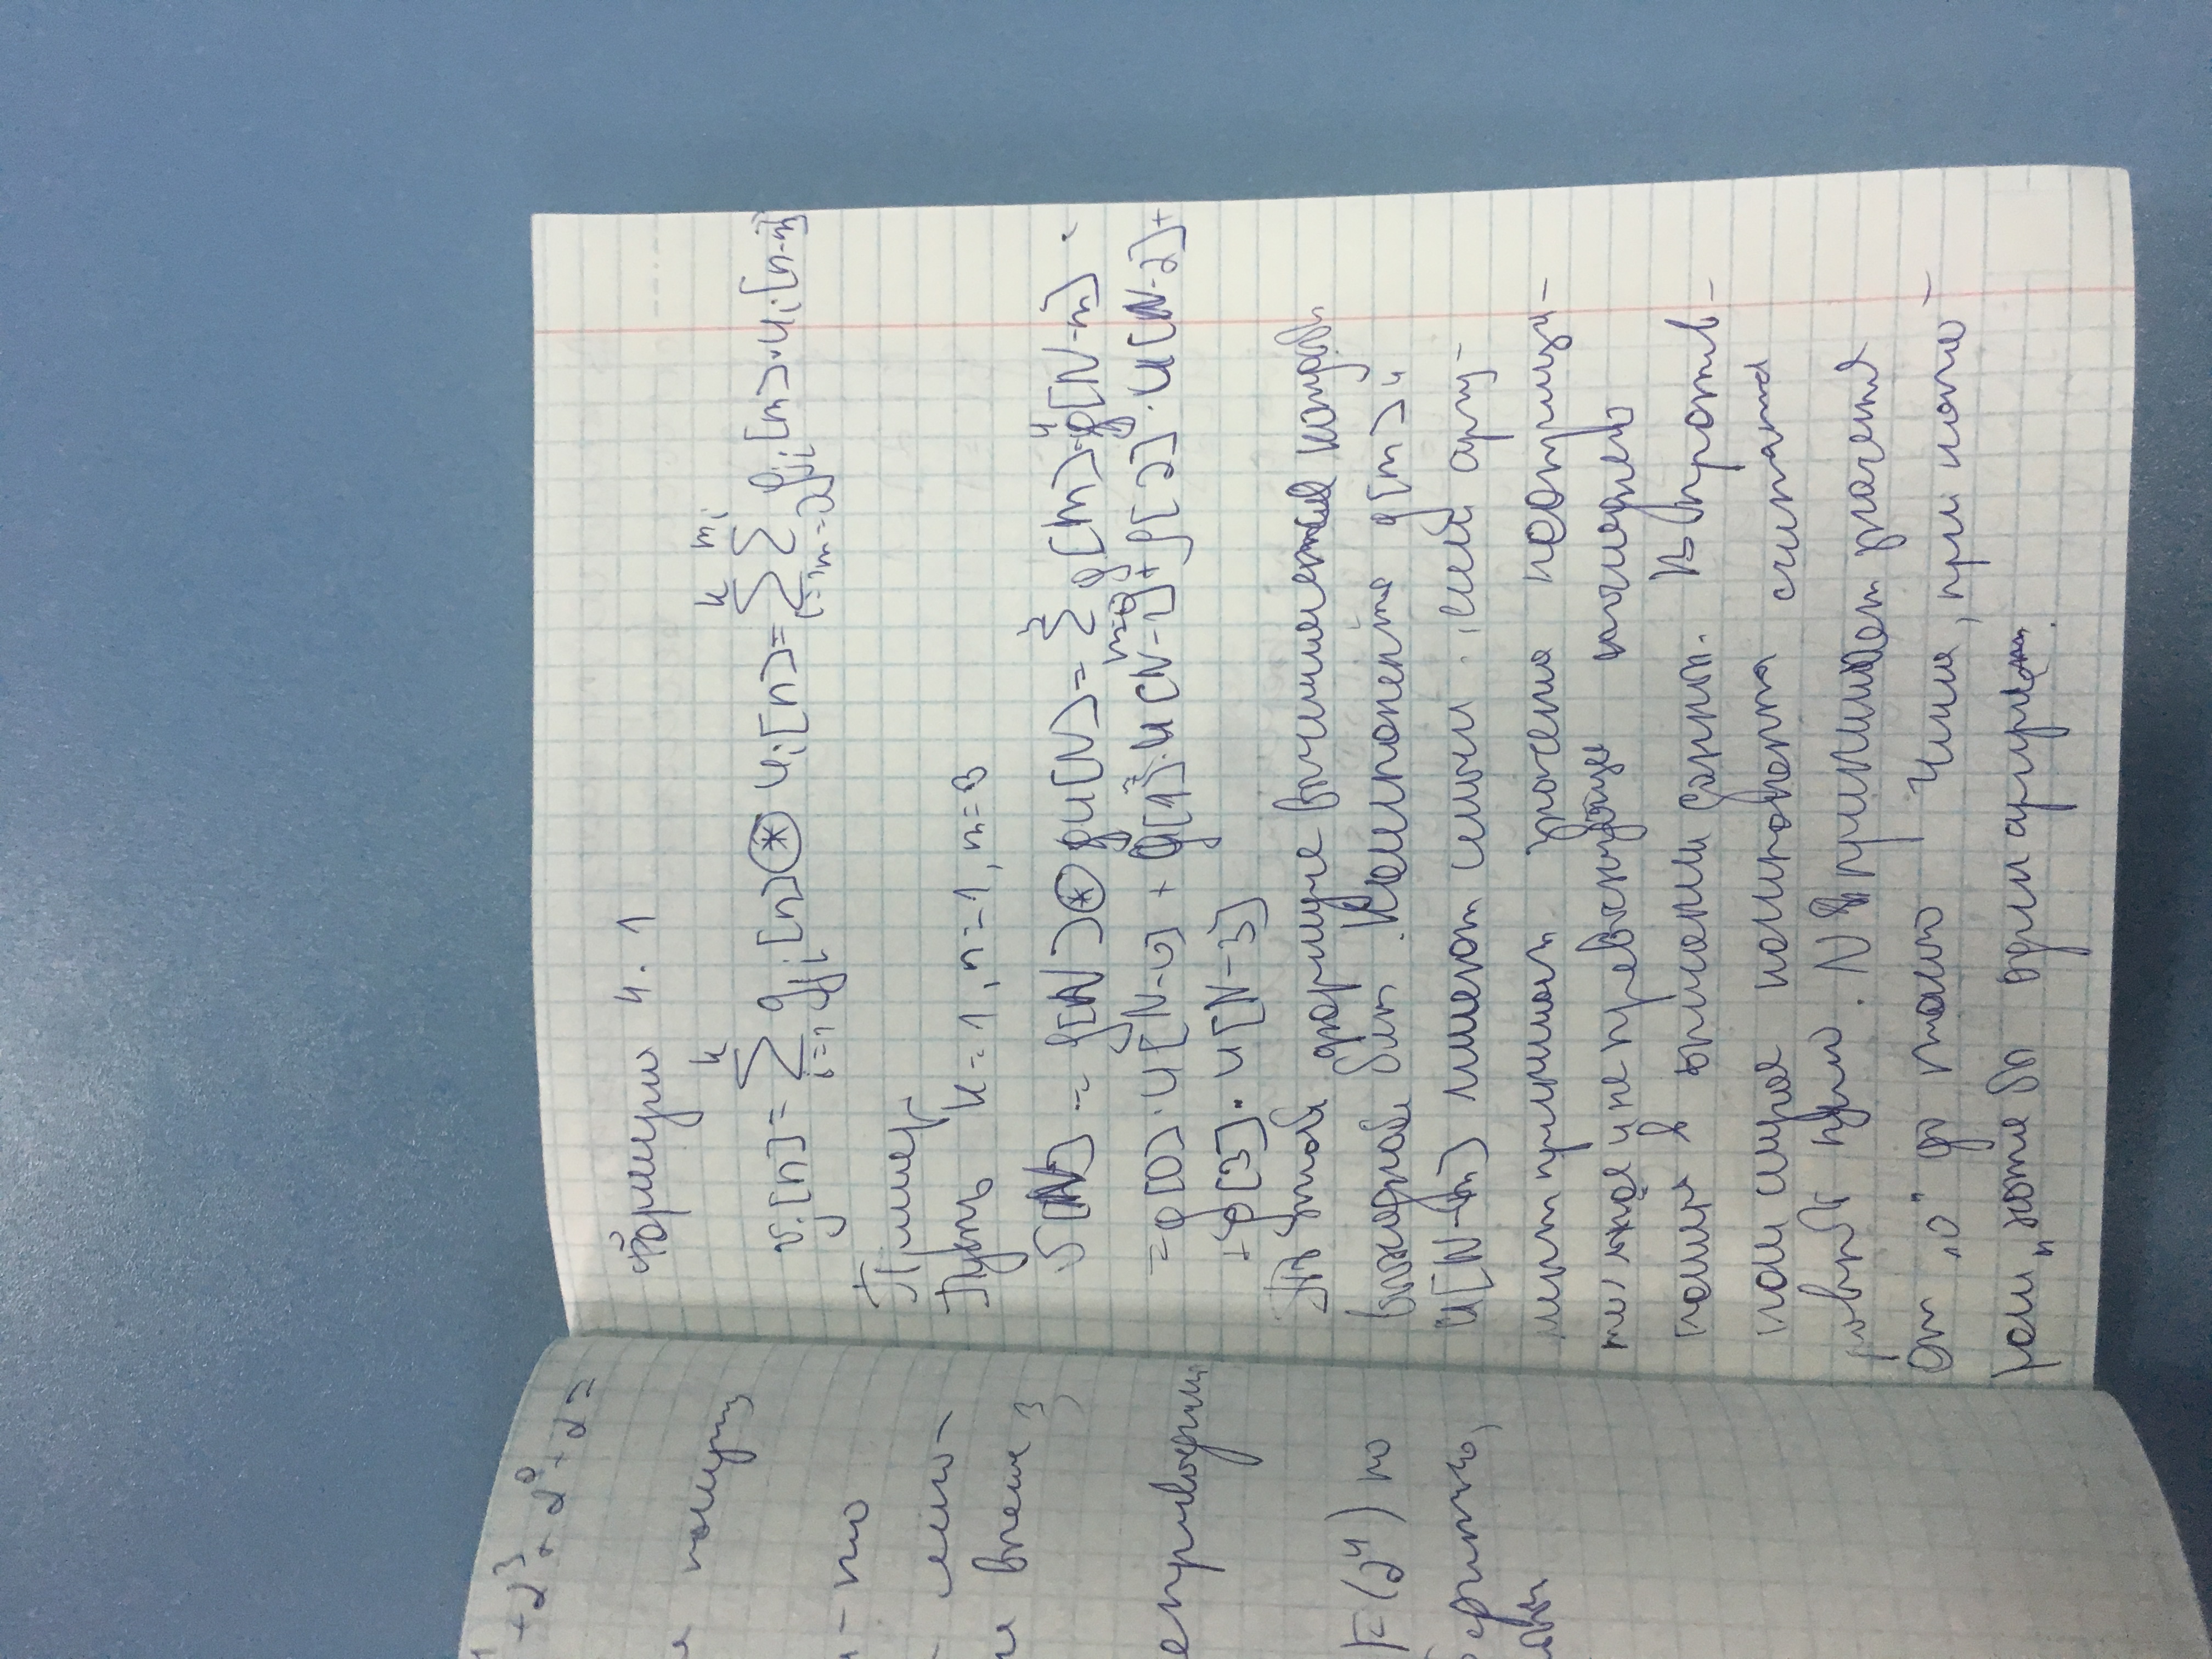 +2³+2⁰+2=
-то
не выше
F(2⁴) по
Формула 4.1
v_j[n] = Σ_{i=1}^{k} g_{ji}[n] ⊛ u_i[n] = Σ_{i=1}^{k} Σ_{m=0}^{m_i} g_{ji}[m]·u_i[n-m]
Пример
Пусть k=1, n=1, m=3
v[N] = g[N] ⊛ u[N] = Σ_{m=0}^{3} g[m]·u[N-m] =
= g[0]·u[N-0] + g[1]·u[N-1] + g[2]·u[N-2] +
+ g[3]·u[N-3]
По этой формуле вычисляется каждый
выходной бит. Компоненты g[m] и
u[N-m] имеют смысл, если аргу-
мент принимает значения неотрица-
тельное и не превышающие последнего
номера в описании данных. В против-
ном случае компонента считается
равной нулю. N принимает значения
От "0" до такого числа, при кото-
ром хотя бы один аргумент.